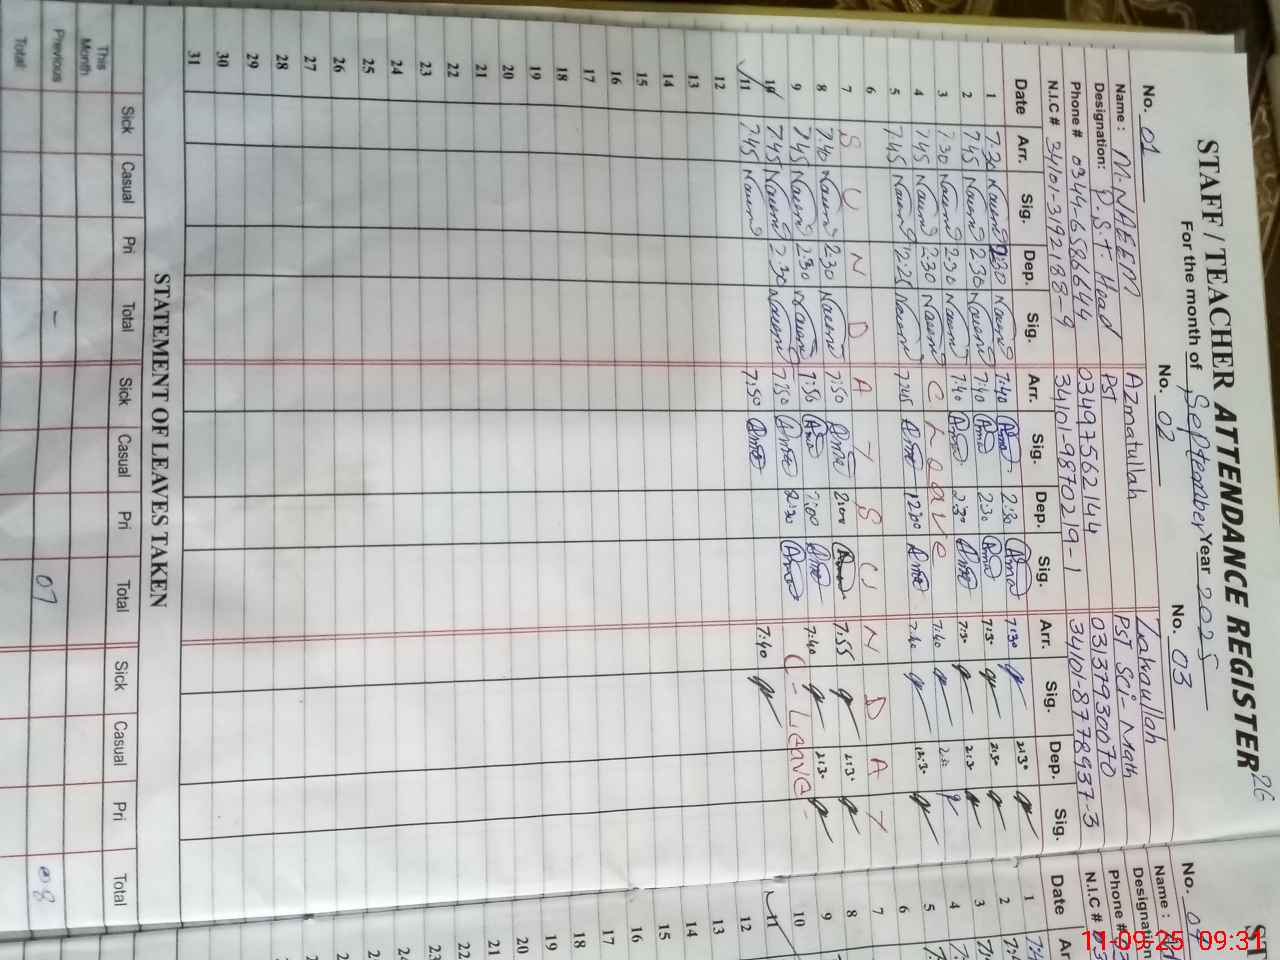 26
STAFF / TEACHER ATTENDANCE REGISTER
For the month of September Year 2025
No. 01 No. 02 No. 03
Name : M. NAEEM Azmatullah Zakaullah
Designation: P.S.T. Head PST PST Sci-Math
Phone # 0344-6586644 03497562144 03137930070
N.I.C # 34101-3192188-9 34101-9870219-1 34101-8778937-3
Date Arr. Sig. Dep. Sig. Arr. Sig. Dep. Sig. Arr. Sig. Dep. Sig.
1 7.30 Naeem 2:30 Naeem 7:40 Azma 2:30 Azma 7:30 2:30
2 7.45 Naeem 2.30 Naeem 7:40 Azma 2:30 Azma 7:30 2:30
3 7.30 Naeem 2.30 Naeem 7:40 Azma 2:30 Azma 7:30 2:30
4 7.45 Naeem 2.30 Naeem C Leave 7:40 2:30
5 7.45 Naeem 12.25 Naeem 7:45 Azma 12:30 Azma 7:40 12:30
6
7 S U N D A Y S U N D A Y
8 7.40 Naeem 2.30 Naeem 7:50 Azma 2:00 Azma 7:55 2:30
9 7.45 Naeem 2.30 Naeem 7:50 Azma 2:00 Azma 7:40 2:30
10 7.45 Naeem 2.30 Naeem 7:50 Azma 2:30 Azma C-Leave
11 7.45 Naeem 7:50 Azma 7:40
12
13
14
15
16
17
18
19
20
21
22
23
24
25
26
27
28
29
30
31
STATEMENT OF LEAVES TAKEN
Sick Casual Pri Total Sick Casual Pri Total Sick Casual Pri Total
This Month
Previous - 07 08
Total
ST
No. 04
Name :
Designation
Phone #
N.I.C #
Date
1
2
3
4
5
6
7
8
9
10
11
12
13
14
15
16
17
18
19
20
21
22
23
24
11-09-25 09:31